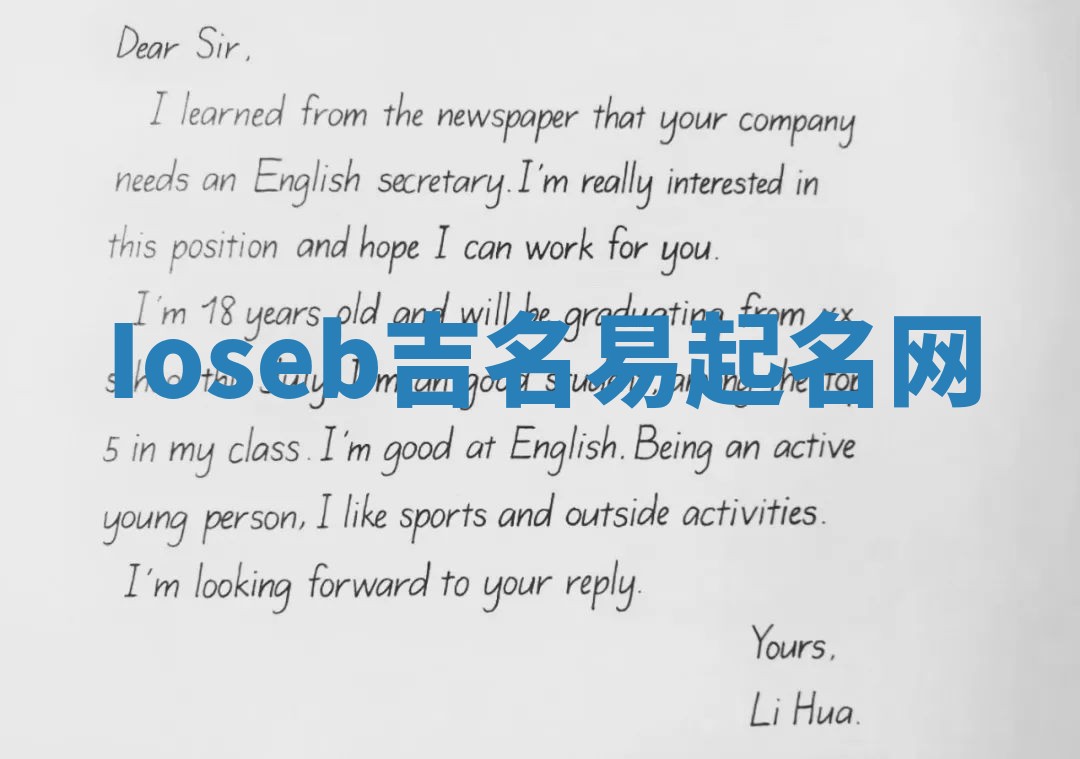 Dear Sir,
I learned from the newspaper that your company
needs an English secretary. I'm really interested in
this position and hope I can work for you.
I'm 18 years old and will be graduating from xx
Ioseb吉名易起名网
5 in my class. I'm good at English. Being an active
young person, I like sports and outside activities.
I'm looking forward to your reply.
Yours,
Li Hua.